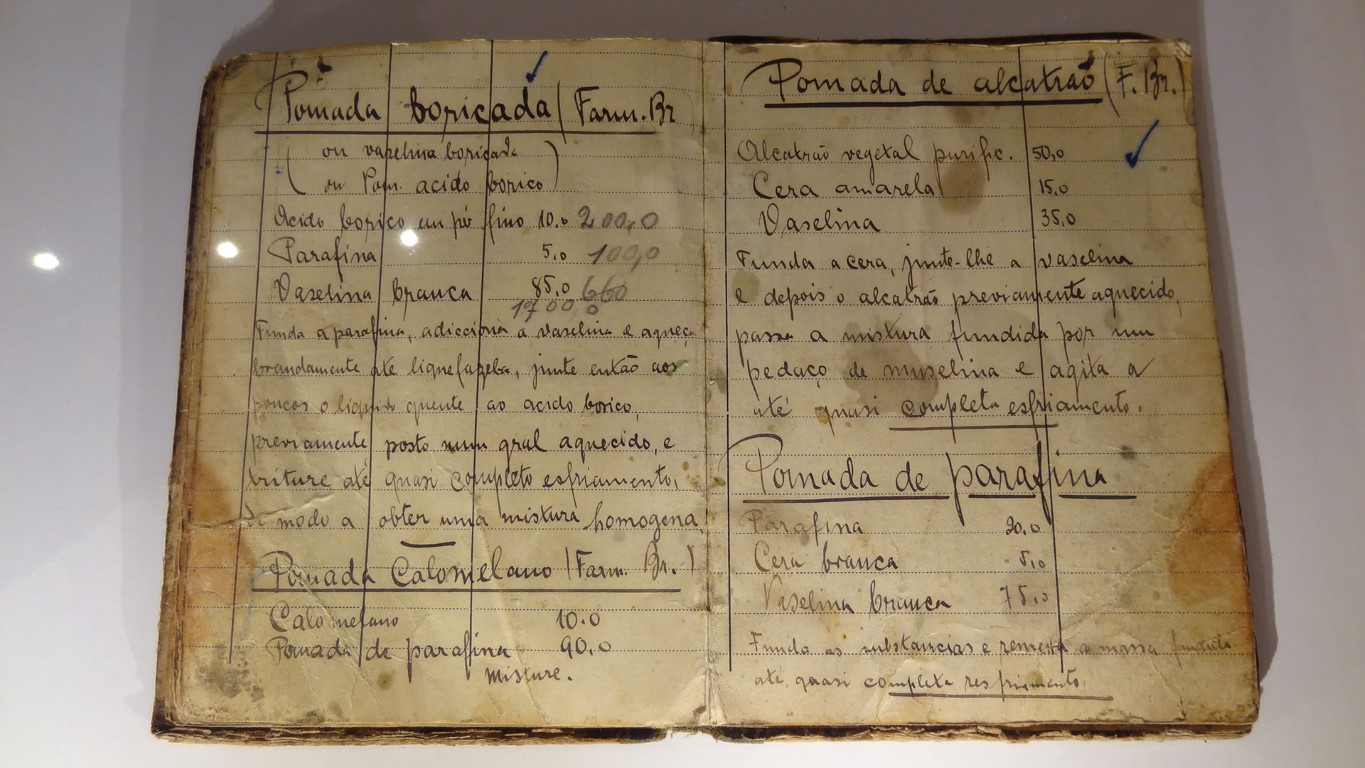 Pomada boricada (Farm. Br
(ou vaselina boricada
ou Pom. acido borico)
Acido borico em pó fino 10.0 200,0
Parafina 5,0 100,0
Vaselina branca 85,0 660
1700,0
Funda a parafina, addicciona a vaselina e aqueça
brandamente até liquefazela, junte então aos
poucos o liquido quente ao acido borico,
previamente posto num gral aquecido, e
triture até quasi completo esfriamento,
de modo a obter uma mistura homogena.
Pomada Calomelano (Farm. Br.)
Calomelano 10.0
Pomada de parafina 90.0
misture.
Pomada de alcatrão (F. Br.)
Alcatrão vegetal purific. 50,0
Cera amarela 15,0
Vaselina 35,0
Funda a cera, junte-lhe a vaselina
e depois o alcatrão previamente aquecido,
passe a mistura fundida por um
pedaço de muselina e agita a
até quasi completa esfriamento.
Pomada de parafina
Parafina 20,0
Cera branca 5,0
Vaselina branca 75,0
Funda as substancias e remexa a massa fundida
até quasi completa resfriamento.